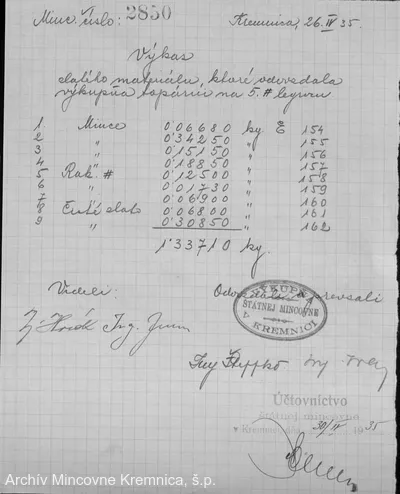 Minc. číslo: 2850
Kremnica, 26. IV 35.
Výkaz
zlatého materiálu, ktoré odovzdala
výkupňa to na 5. #
1 Mince 0'06680 kg. E 154
2 " 0'34250 " 155
3 " 0'15150 " 156
4 " 0'18850 " 157
5 Rak. # 0'12500 " 158
6 " 0'01730 " 159
7 0'06900 " 160
8 České zlato 0'06800 " 161
9 " 0'30850 " 162
1'33710 kg.
Videli:
Odovzdali a prevzali
VÝKUP
ŠTÁTNEJ MINCOVNE
V KREMNICI
Ing.
Účtovníctvo
štátnej mincovne
v Kremnici 30/IV 1935
Archív Mincovne Kremnica, š.p.